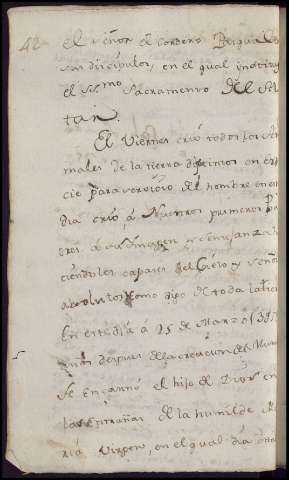 42
el Señor el Cordero Pasqual
sus discipulos, en el qual instituy
el SSmo Sacramento del Al
tar.
El Viernes crió todos los Ani
males de la tierra en espe
cie para servicio del hombre en este
dia crió á Nuestros primeros P
dres á su Imagen y semejanza
ciendoles capaces del Cielo, y Señor
absolutos como dijo de toda la tier
En este dia á 25 de Marzo
años despues de la creacion del Mun
se encarnó el hijo de Dios en
las entrañas de la humilde Ma
ria Virgen, en el qual dia